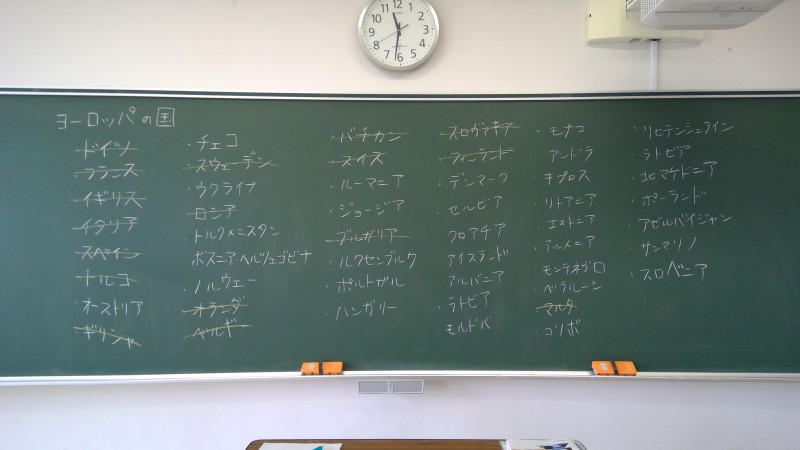 ヨーロッパの国
・ドイツ
・フランス
・イギリス
・イタリア
・スペイン
・トルコ
・オーストリア
・ギリシャ
・チェコ
・スウェーデン
・ウクライナ
・ロシア
・トルクメニスタン
ボスニアヘルツェゴビナ
・ノルウェー
・オランダ
・ベルギー
・バチカン
・スイス
・ルーマニア
・ジョージア
・ブルガリア
・ルクセンブルク
・ポルトガル
・ハンガリー
・スロヴァキア
・フィンランド
・デンマーク
・セルビア
・クロアチア
・アイスランド
・アルバニア
・ラトビア
モルドバ
・モナコ
・アンドラ
・キプロス
・リトアニア
・エストニア
・アルメニア
モンテネグロ
・ベラルーシ
・マルタ
・コソボ
・リヒテンシュタイン
・ラトビア
・北マケドニア
・ポーランド
・アゼルバイジャン
・サンマリノ
・スロベニア
12
1
2
3
4
5
6
7
8
9
10
11